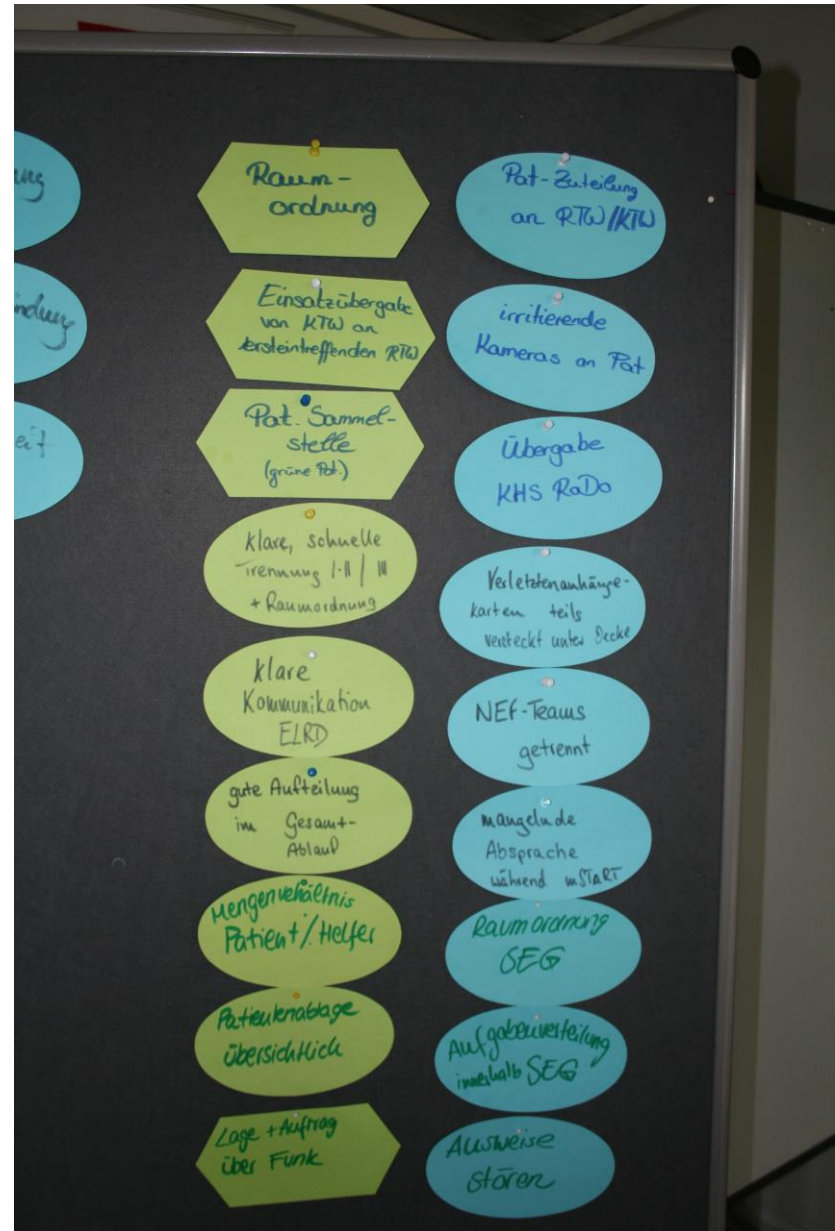 Raum-
ordnung
Einsatzübergabe
von KTW an
ersteintreffenden RTW
Pat. Sammel-
stelle
(grüne Pat.)
klare, schnelle
Trennung I-II / III
+ Raumordnung
klare
Kommunikation
ELRD
gute Aufteilung
im Gesamt-
Ablauf
Mengenverhältnis
Patient ./. Helfer
Patientenablage
übersichtlich
Lage + Auftrag
über Funk
Pat-Zuteilung
an RTW/KTW
irritierende
Kameras an Pat
Übergabe
KHS RaDo
Verletztenanhänge-
karten teils
versteckt unter Decke
NEF-Teams
getrennt
mangelnde
Absprache
während mSTART
Raumordnung
SEG
Aufgabenverteilung
innerhalb SEG
Ausweise
stören